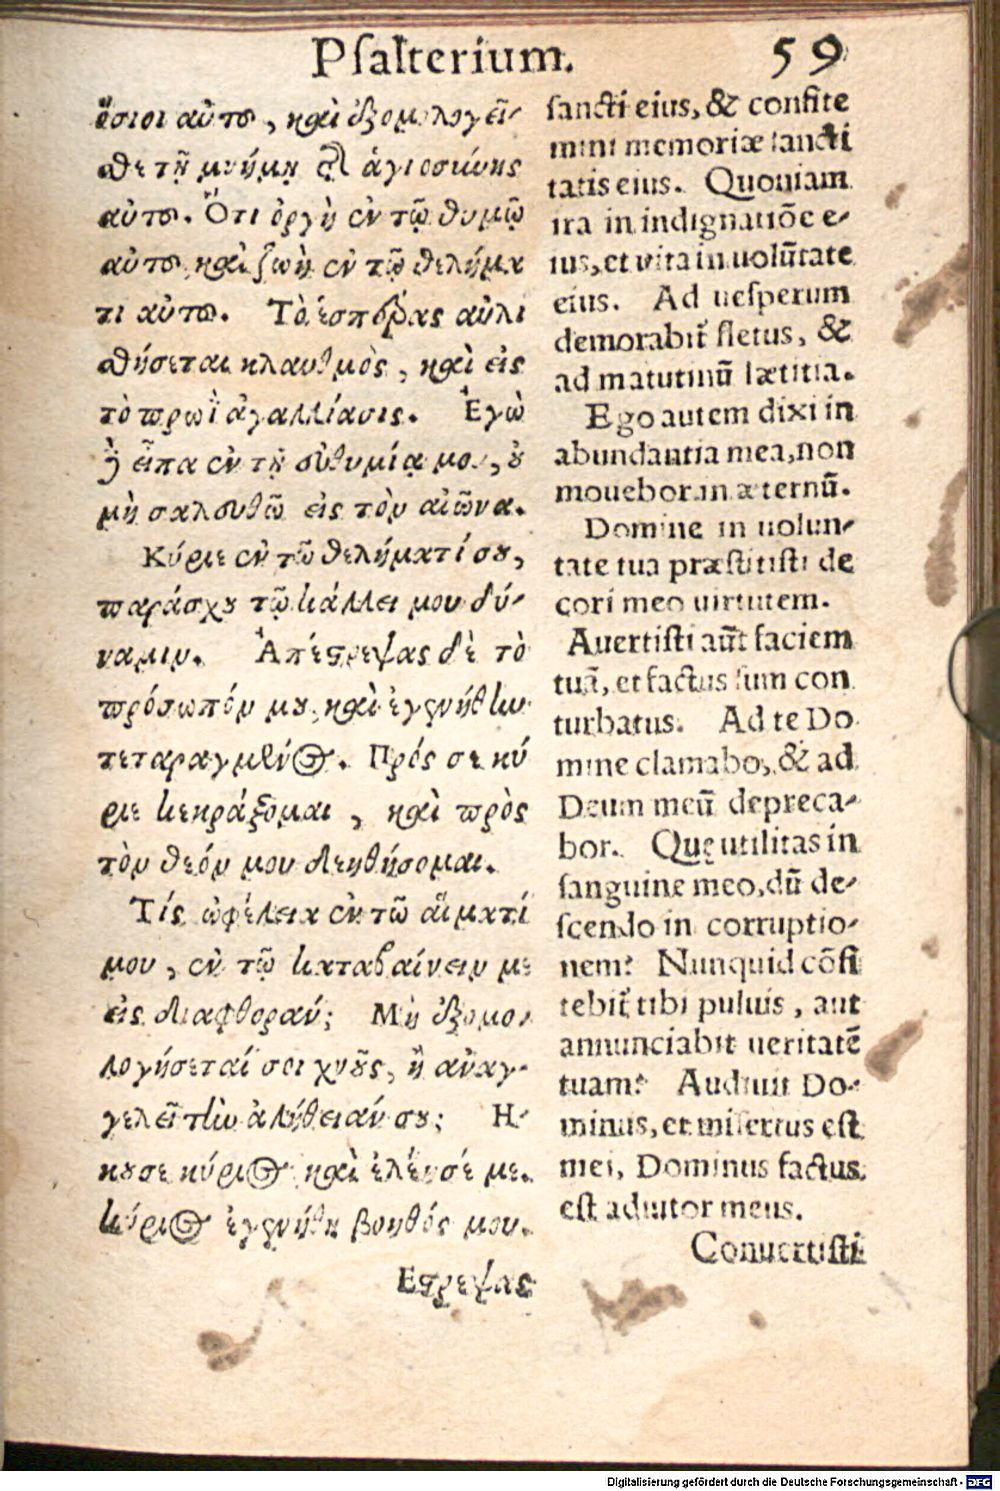 Psalterium. 59
ὅσιοι αὐτοῦ, καὶ ἐξομολογεῖ-
σθε τῇ μνήμῃ τῆς ἁγιοσύνης
αὐτοῦ. Ὅτι ὀργὴ ἐν τῷ θυμῷ
αὐτοῦ, καὶ ζωὴ ἐν τῷ θελήμα
τι αὐτοῦ. Τὸ ἑσπέρας αὐλι
σθήσεται κλαυθμὸς, καὶ εἰς
τὸ πρωῒ ἀγαλλίασις. Ἐγὼ
δὲ εἶπα ἐν τῇ εὐθυμίᾳ μου, οὐ
μὴ σαλευθῶ εἰς τὸν αἰῶνα.
Κύριε ἐν τῷ θελήματί σου,
παράσχου τῷ κάλλει μου δύ-
ναμιν. Ἀπέστρεψας δὲ τὸ
πρόσωπόν μου, καὶ ἐγενήθην
τεταραγμένος. Πρός σε κύ
ριε κεκράξομαι, καὶ πρὸς
τὸν θεόν μου δεηθήσομαι.
Τίς ὠφέλεια ἐν τῷ αἵματί
μου, ἐν τῷ καταβαίνειν με
εἰς διαφθοράν; Μὴ ἐξομο-
λογήσεταί σοι χοῦς, ἢ ἀναγ-
γελεῖ τὴν ἀλήθειάν σου; Η-
κουσε κύριος καὶ ἐλέησέ με.
κύριος ἐγενήθη βοηθός μου.
Εστρεψας
sancti eius, & confite
mini memoriæ sancti
tatis eius. Quoniam
ira in indignatiōe e-
ius, et vita in uolūtate
eius. Ad uesperum
demorabit̃ fletus, &
ad matutinū lætitia.
Ego autem dixi in
abundantia mea, non
mouebor in æternū.
Domine in uolun-
tate tua præstitisti de
cori meo uirtutem.
Auertisti aūt faciem
tuā, et factus sum con
turbatus. Ad te Do
mine clamabo, & ad
Deum meū depreca-
bor. Quę utilitas in
sanguine meo, dū de-
scendo in corruptio-
nem? Nunquid cōfi
tebit̃ tibi puluis, aut
annunciabit ueritatē
tuam? Audiuit Do-
minus, et misertus est
mei, Dominus factus
est adiutor meus.
Conuertisti
Digitalisierung gefördert durch die Deutsche Forschungsgemeinschaft - DFG